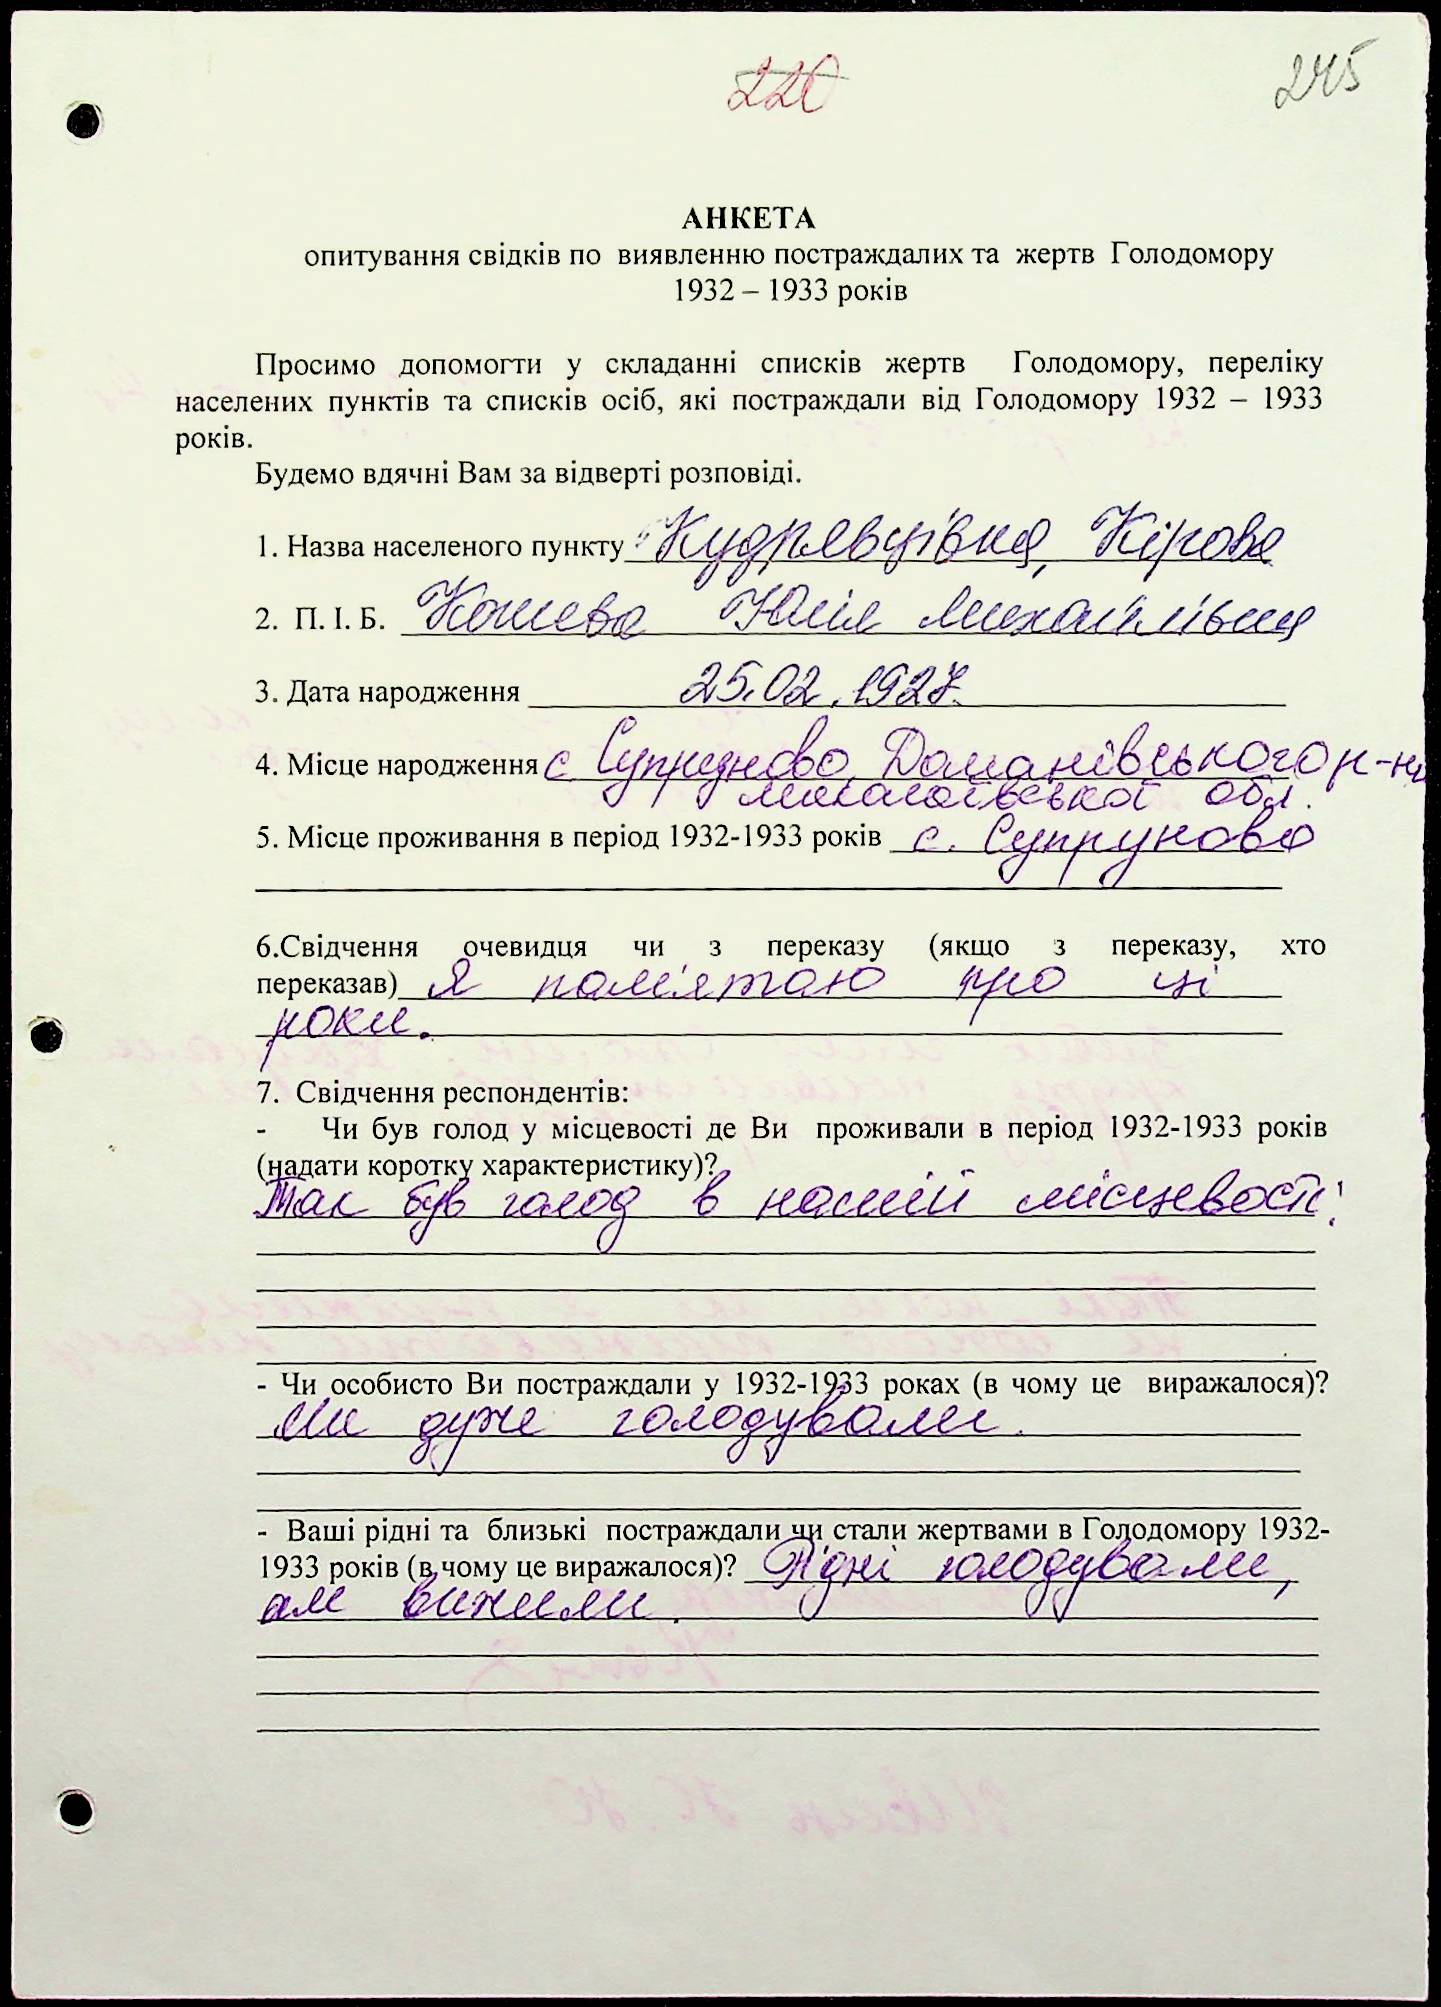 220
245
АНКЕТА
опитування свідків по виявленню постраждалих та жертв Голодомору
1932 – 1933 років
Просимо допомогти у складанні списків жертв Голодомору, переліку
населених пунктів та списків осіб, які постраждали від Голодомору 1932 – 1933
років.
Будемо вдячні Вам за відверті розповіді.
1. Назва населеного пункту Кудрявцівка, Кірова
2. П. І. Б. Кошева Юлія Михайлівна
3. Дата народження 25.02.1927.
4. Місце народження с Супруново Доманівського р-ну
Миколаївської обл.
5. Місце проживання в період 1932-1933 років с. Супруново
6.Свідчення очевидця чи з переказу (якщо з переказу, хто
переказав) Я пам'ятаю про ці
роки.
7. Свідчення респондентів:
- Чи був голод у місцевості де Ви проживали в період 1932-1933 років
(надати коротку характеристику)?
Так був голод в нашій місцевості.
- Чи особисто Ви постраждали у 1932-1933 роках (в чому це виражалося)?
Ми дуже голодували.
- Ваші рідні та близькі постраждали чи стали жертвами в Голодомору 1932-
1933 років (в чому це виражалося)? Рідні голодували,
але вижили.